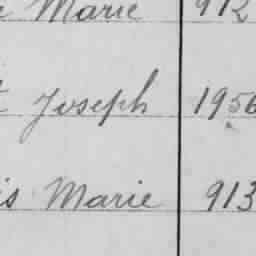 Marie 912
Joseph 1956
is Marie 913